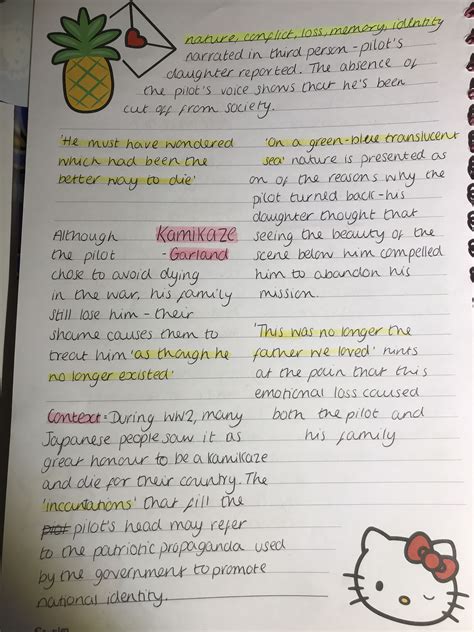 nature, conflict, loss, memory, identity
narrated in third person - pilot's
daughter reported. The absence of
the pilot's voice shows that he's been
cut off from society.
'He must have wondered
which had been the
better way to die'
'On a green-blue translucent
sea' nature is presented as
on of the reasons why the
pilot turned back - his
daughter thought that
seeing the beauty of the
scene below him compelled
him to abandon his
mission.
Kamikaze
- Garland
Although
the pilot
chose to avoid dying
in the war, his family
still lose him - their
shame causes them to
treat him 'as though he
no longer existed'
'This was no longer the
father we loved' hints
at the pain that this
emotional loss caused
both the pilot and
his family
Context = During WW2, many
Japanese people saw it as
great honour to be a kamikaze
and die for their country. The
'incantations' that fill the
pilot's head may refer
to the patriotic propaganda used
by the government to promote
national identity.